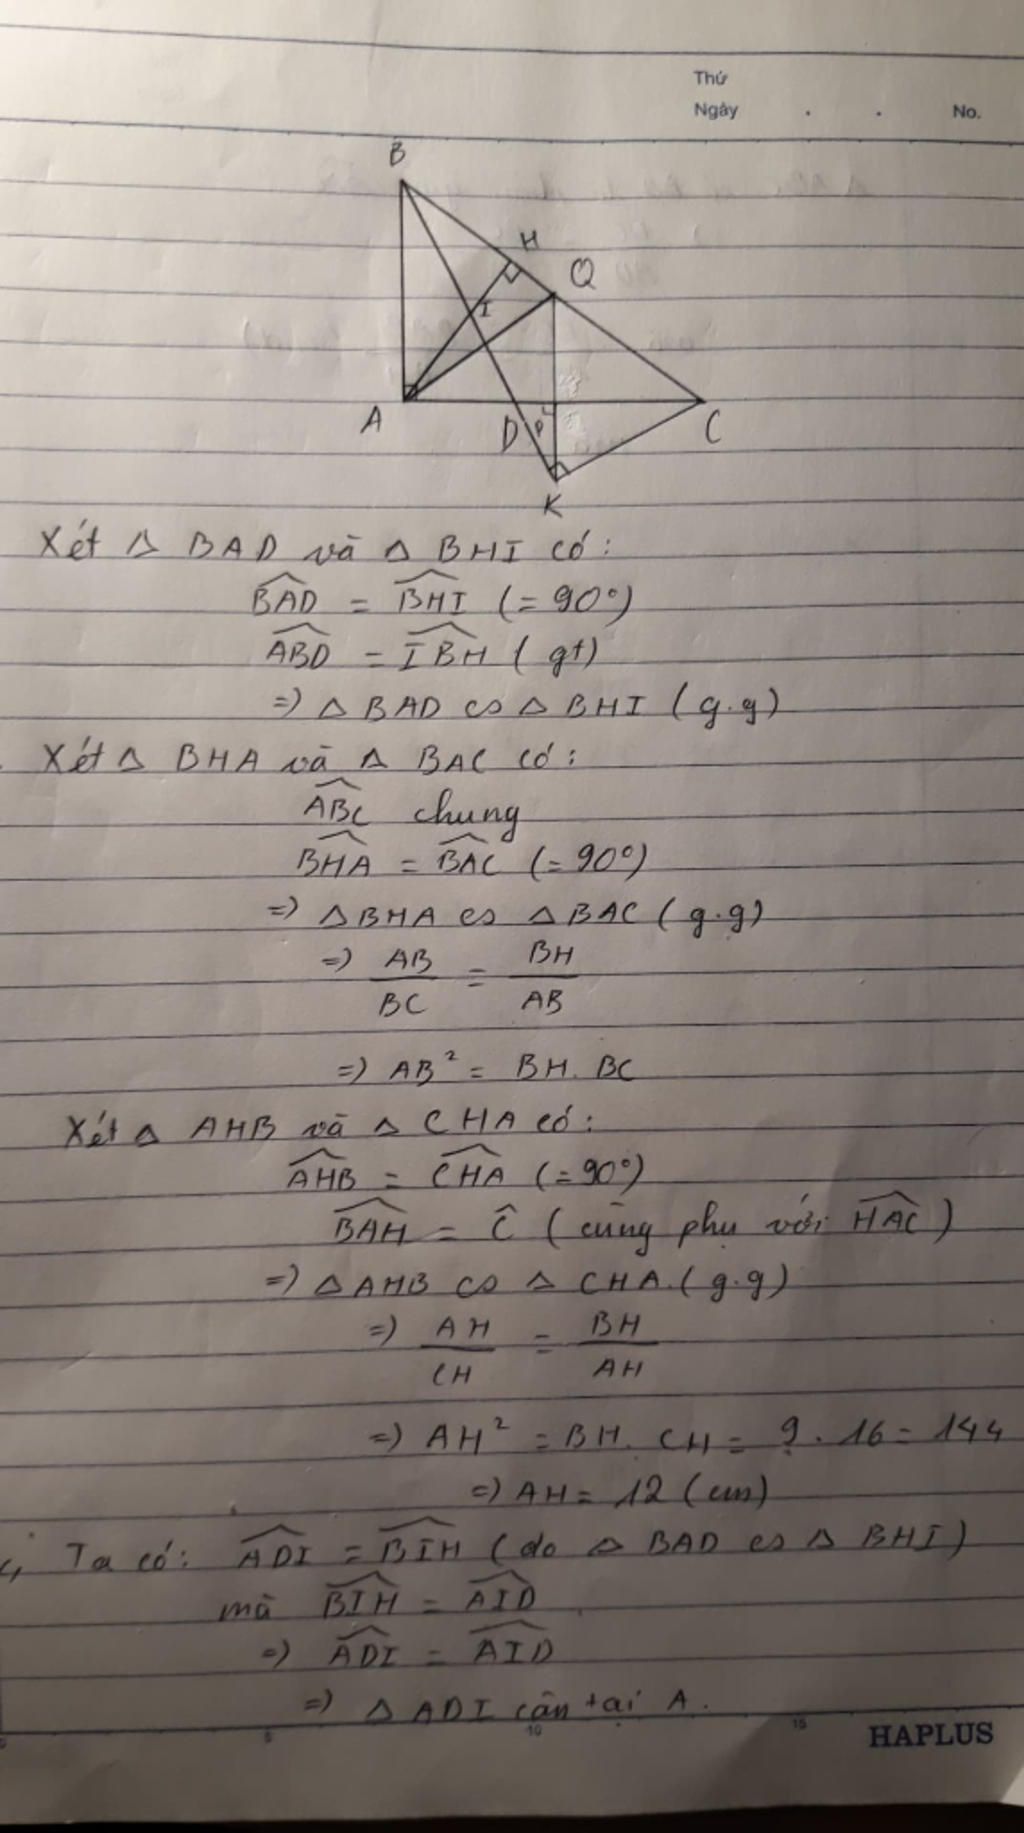 Thứ
Ngày . . No.
B
H
Q
I
A
D
P
C
K
Xét Δ BAD và Δ BHI có:
BAD = BHI (= 90°)
ABD = IBH ( gt)
=> Δ BAD ∽ Δ BHI ( g.g)
Xét Δ BHA và Δ BAC có:
ABC chung
BHA = BAC (= 90°)
=> Δ BHA ∽ Δ BAC ( g.g)
=> AB/BC = BH/AB
=> AB² = BH. BC
Xét Δ AHB và Δ CHA có:
AHB = CHA (= 90°)
BAH = Ĉ ( cùng phụ với HAC )
=> Δ AHB ∽ Δ CHA. ( g.g)
=> AH/CH = BH/AH
=> AH² = BH. CH = 9 . 16 = 144
=> AH = 12 ( cm)
c, Ta có: ADI = BIH ( do Δ BAD ∽ Δ BHI )
mà BIH = AID
=> ADI = AID
=> Δ ADI cân tại A.
5 10 15 HAPLUS